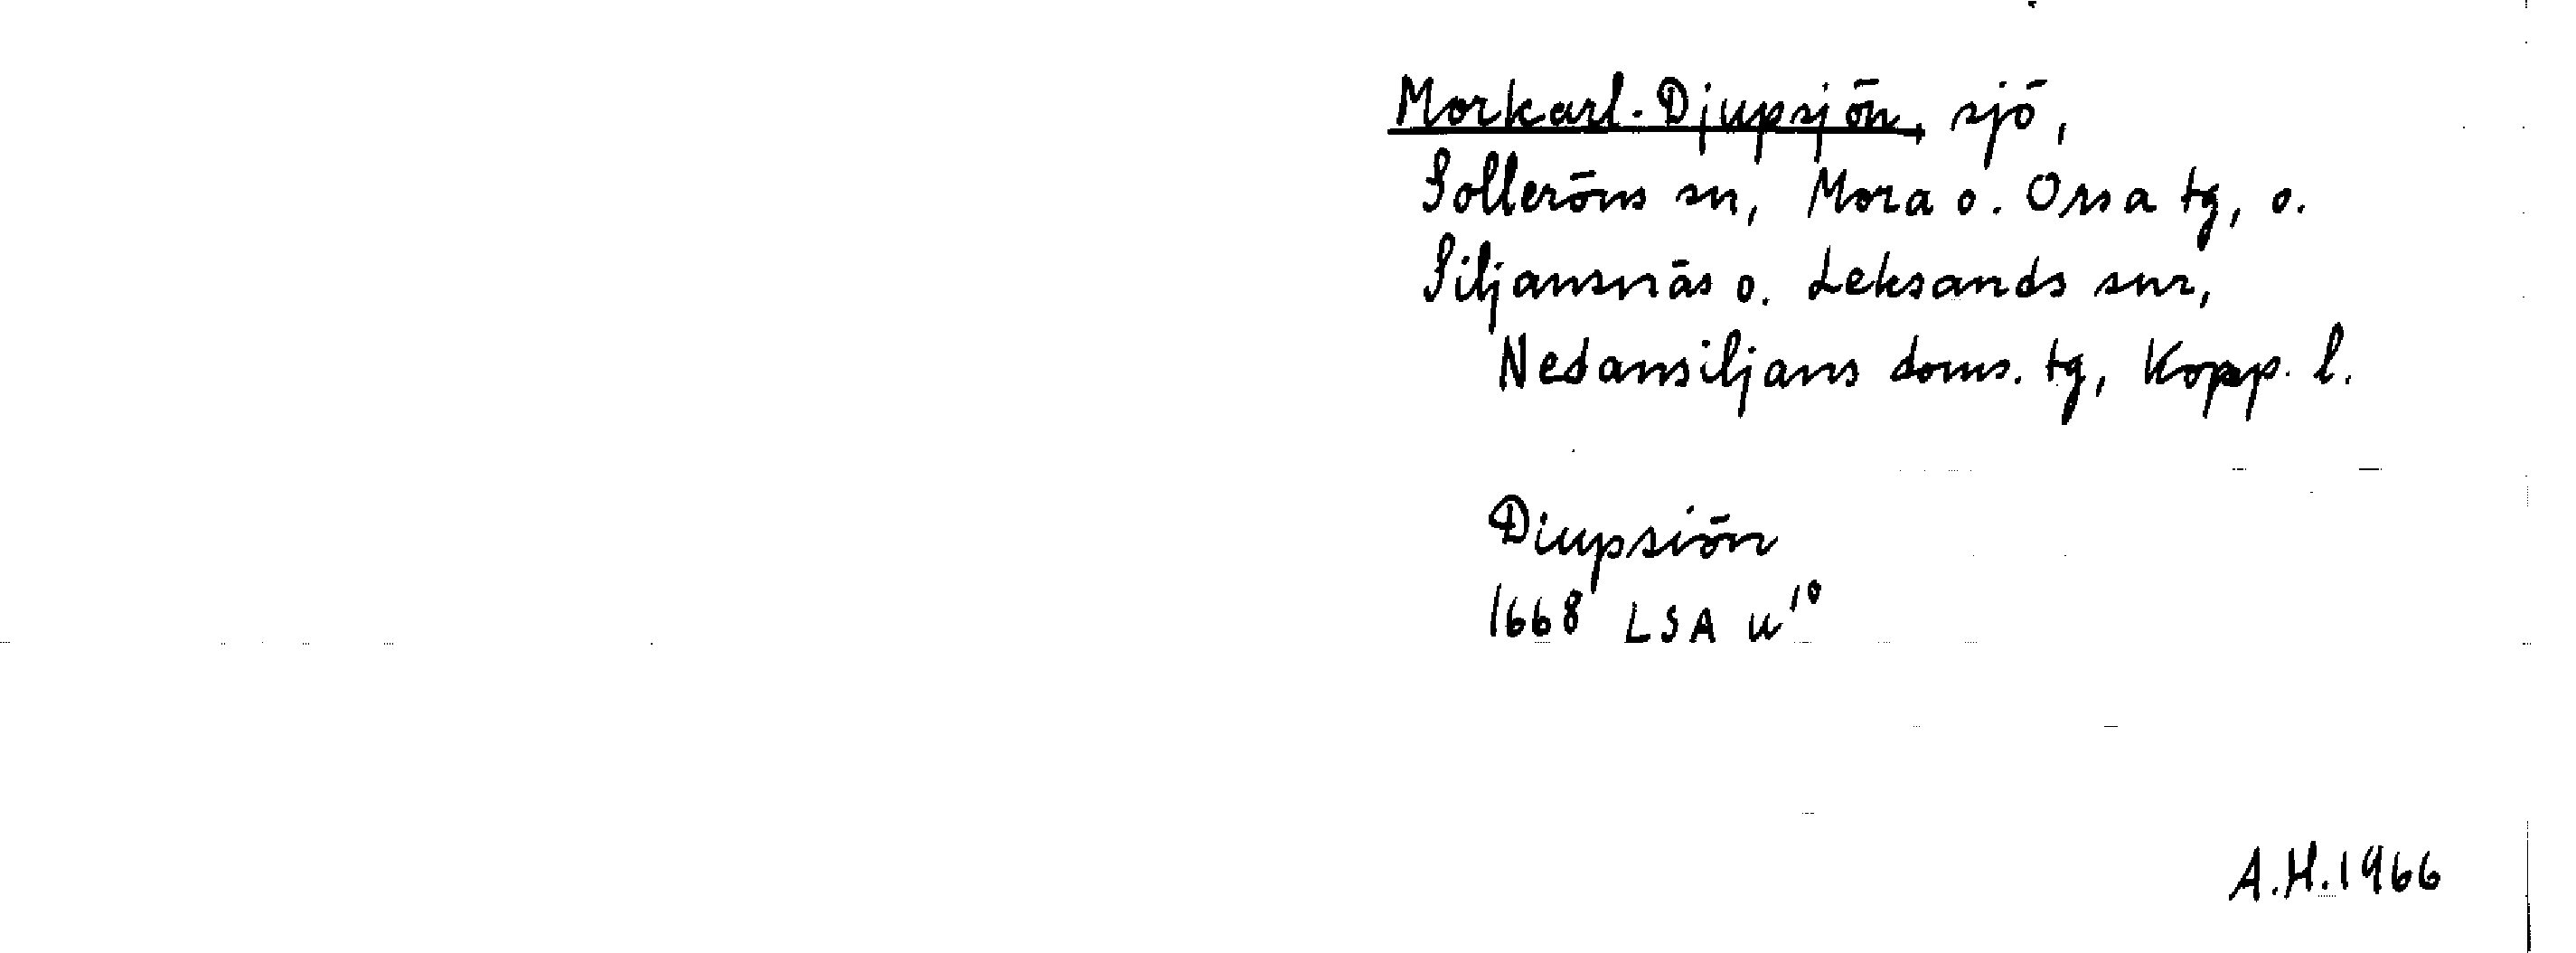 Morkarl-Djupsjön, sjö,
Solleröns sn, Mora o. Orsa tg, o.
Siljansnäs o. Leksands snr,
Nedansiljans doms. tg, Kopp. l.
Diupsiön
1668 LSA u¹⁰
A.H. 1966